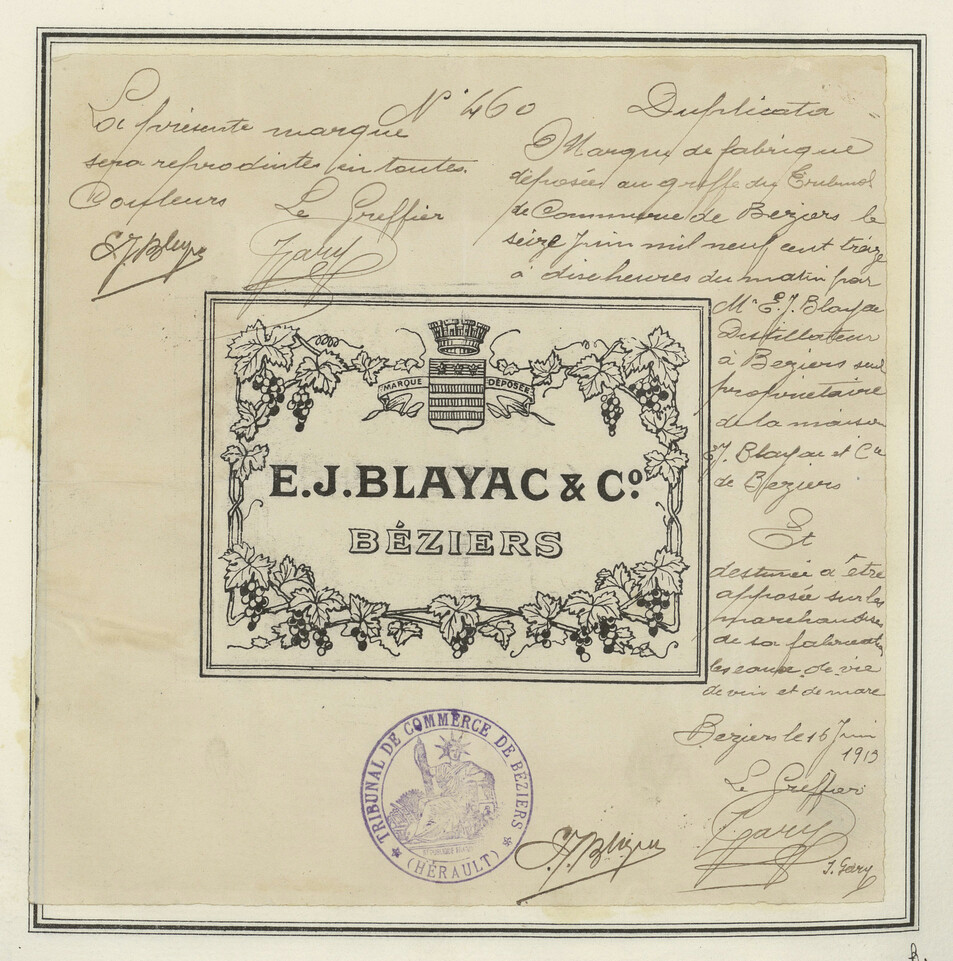 N° 460
La présente marque
sera reproduite en toutes
Couleurs Le Greffier
E.J. Blayac
Gary
Duplicata
Marque de fabrique
déposée au greffe du Tribunal
de Commerce de Beziers le
seize Juin mil neuf cent treize
à dix heures du matin par
Mr E. J. Blayac
Distillateur
à Beziers seul
propriétaire
de la maison
E.J. Blayac et Cie
de Beziers
Et
destinée à être
apposée sur les
marchandises
de sa fabrication
les eaux de vie
de vin et de marc
Beziers le 16 Juin
1913
Le Greffier
E.J. Blayac
Gary
J. Gary
MARQUE DÉPOSÉE
E.J.BLAYAC & Co.
BÉZIERS
TRIBUNAL DE COMMERCE DE BÉZIERS
(HÉRAULT)